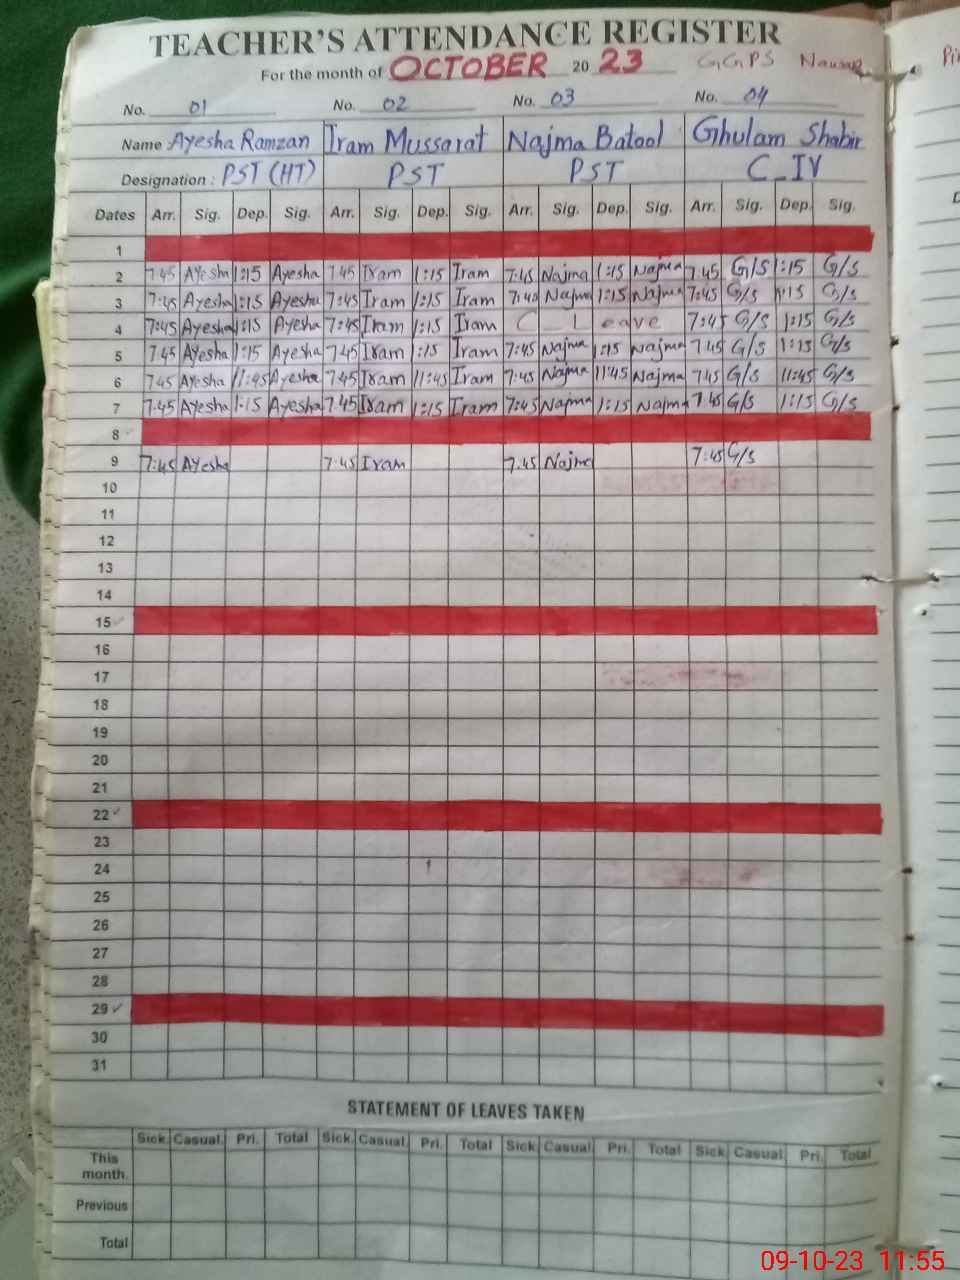 TEACHER'S ATTENDANCE REGISTER
For the month of OCTOBER 20 23 GGPS
No. 01 No. 02 No. 03 No. 04
Name Ayesha Ramzan Iram Mussarat Najma Batool Ghulam Shabir
Designation : PST (HT) PST PST C_IV
Dates Arr. Sig. Dep. Sig. Arr. Sig. Dep. Sig. Arr. Sig. Dep. Sig. Arr. Sig. Dep. Sig.
1
2 7:45 Ayesha 1:15 Ayesha 7:45 Iram 1:15 Iram 7:45 Najma 1:15 Najma 7:45 G/S 1:15 G/S
3 7:45 Ayesha 1:15 Ayesha 7:45 Iram 1:15 Iram 7:45 Najma 1:15 Najma 7:45 G/S 1:15 G/S
4 7:45 Ayesha 1:15 Ayesha 7:45 Iram 1:15 Iram C Leave 7:45 G/S 1:15 G/S
5 7:45 Ayesha 1:15 Ayesha 7:45 Iram 1:15 Iram 7:45 Najma 1:15 Najma 7:45 G/S 1:15 G/S
6 7:45 Ayesha 11:45 Ayesha 7:45 Iram 11:45 Iram 7:45 Najma 11:45 Najma 7:45 G/S 11:45 G/S
7 7:45 Ayesha 1:15 Ayesha 7:45 Iram 1:15 Iram 7:45 Najma 1:15 Najma 7:45 G/S 1:15 G/S
8
9 7:45 Ayesha 7:45 Iram 7:45 Najma 7:45 G/S
10
11
12
13
14
15
16
17
18
19
20
21
22
23
24
25
26
27
28
29
30
31
STATEMENT OF LEAVES TAKEN
Sick. Casual. Pri. Total Sick. Casual. Pri. Total Sick Casual Pri. Total Sick Casual Pri. Total
This month.
Previous
Total
09-10-23 11:55